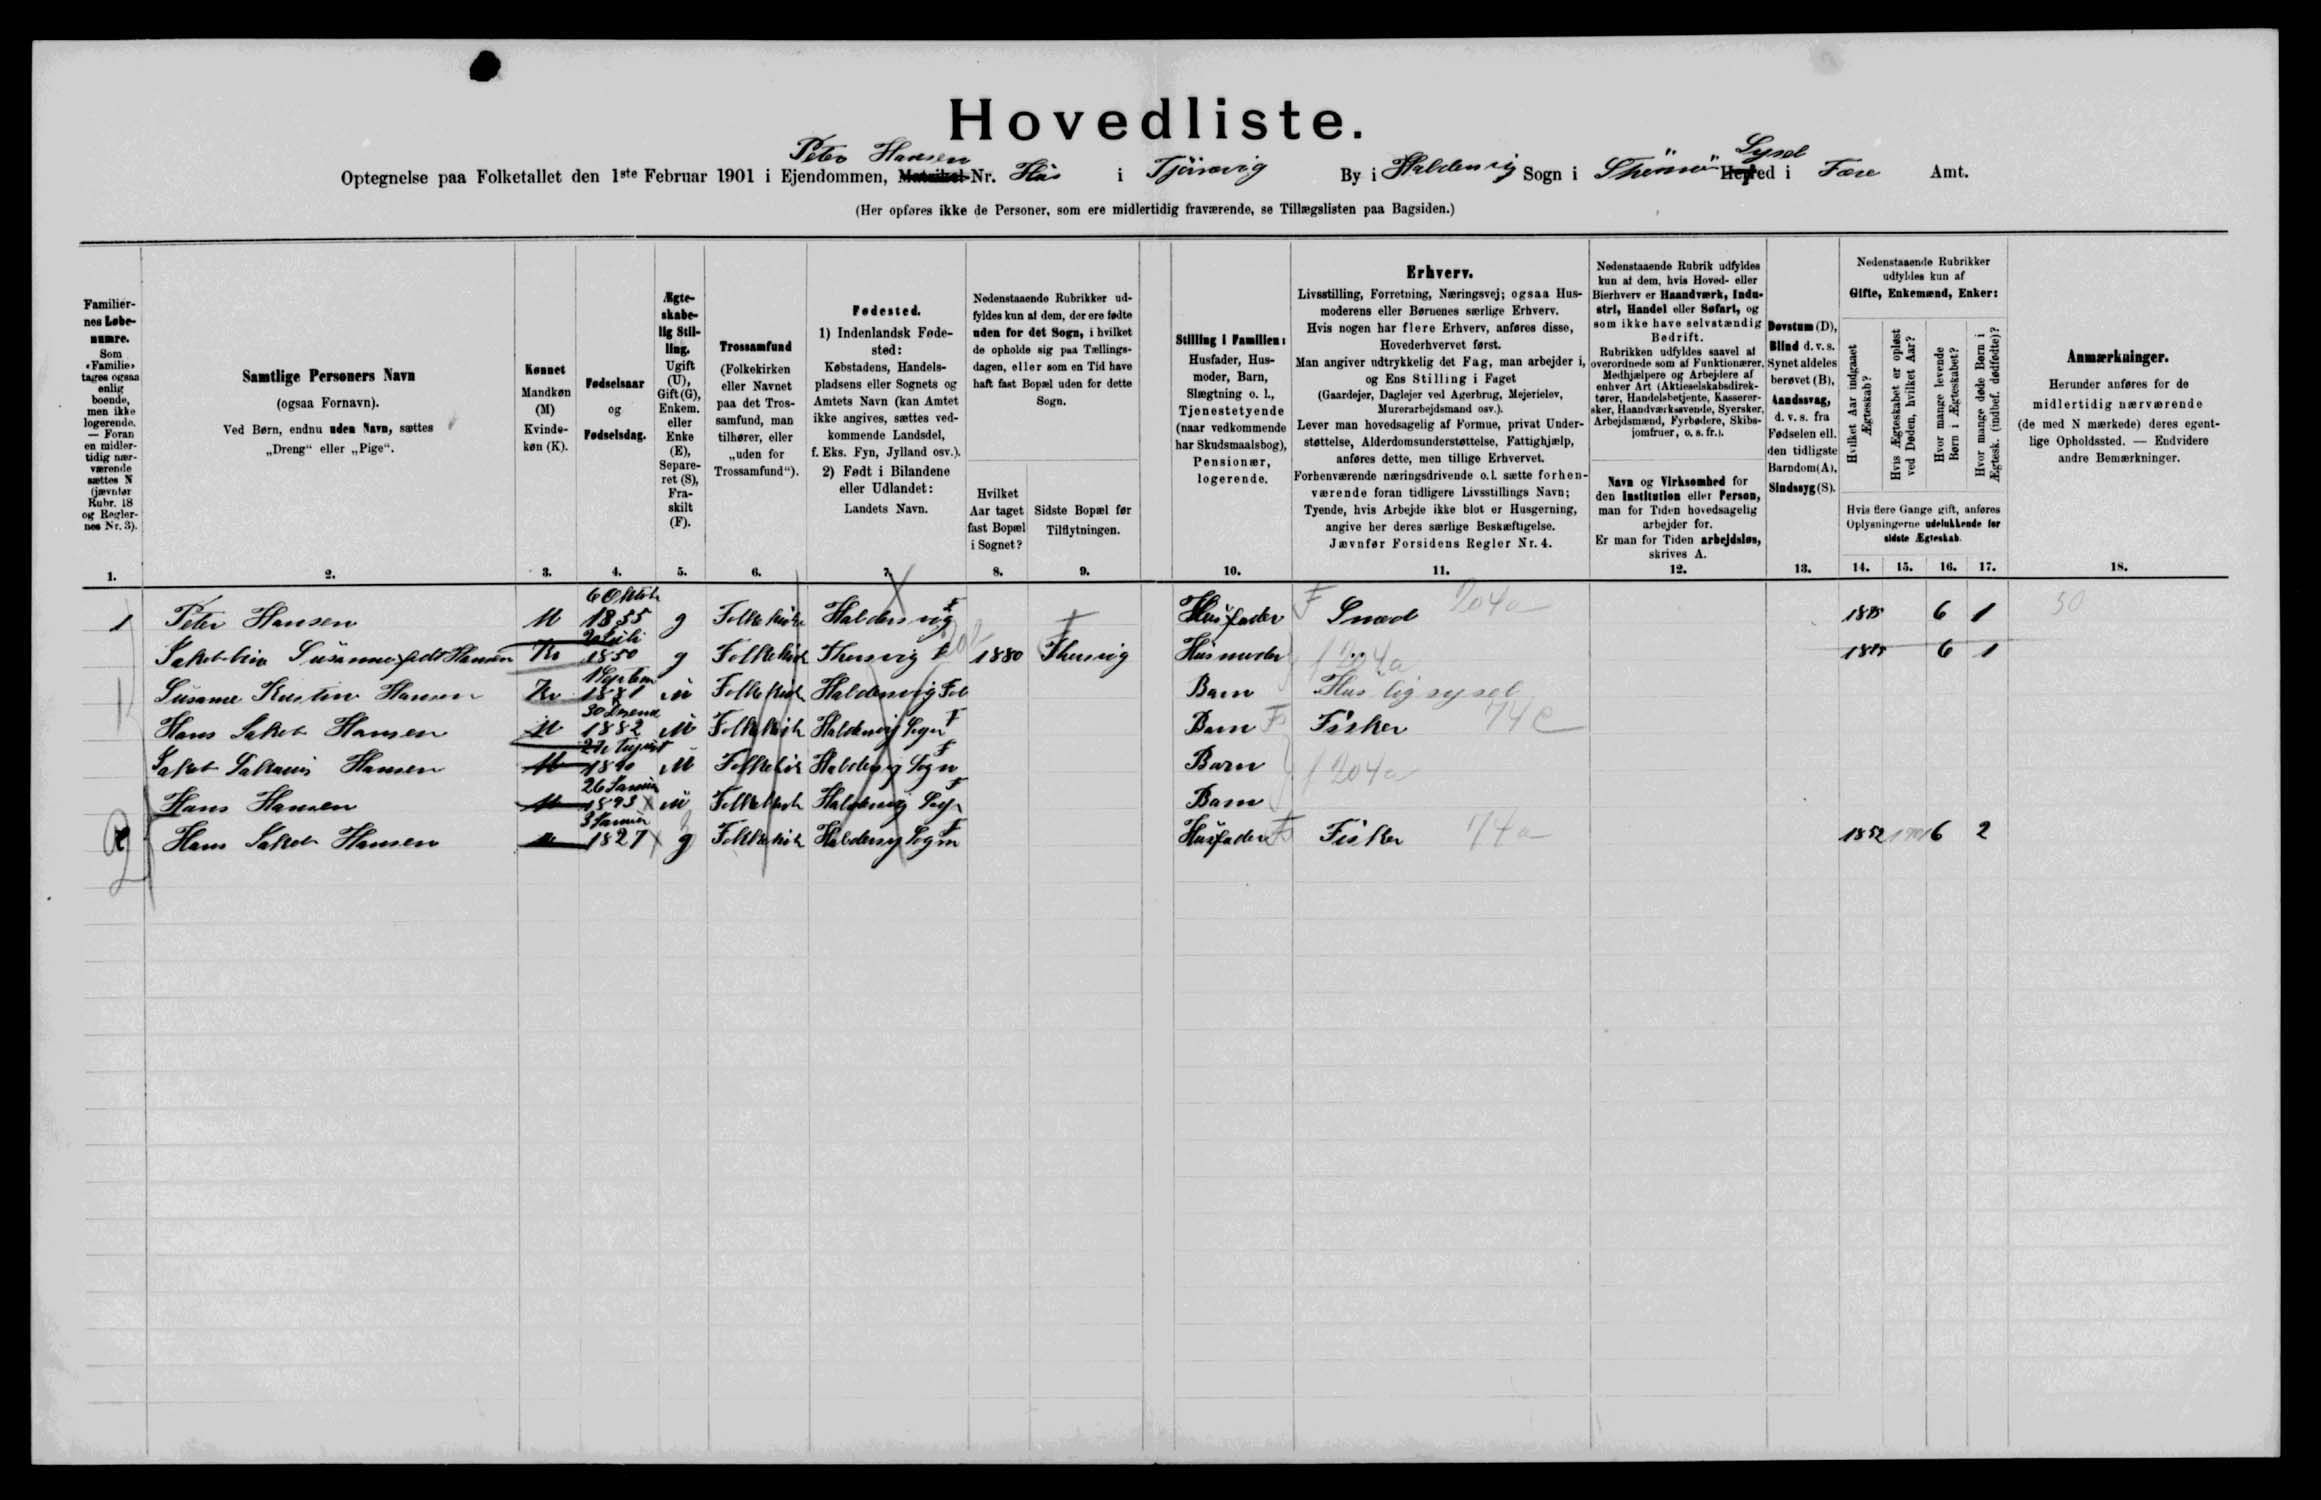 Hovedliste.
Peter Hansen
Sysel
Optegnelse paa Folketallet den 1ste Februar 1901 i Ejendommen, Matrikel-Nr. Hus i Tjörnvig By i Haldersvig Sogn i Strömö Herred i Fære Amt.
(Her opføres ikke de Personer, som ere midlertidig fraværende, se Tillægslisten paa Bagsiden.)
Familiernes Løbenumre.
Som «Familie» tages ogsaa enlig boende, men ikke logerende. — Foran en midlertidig nærværende sættes N (jævnfør Rubr. 18 og Reglernes Nr. 3).
Samtlige Personers Navn
(ogsaa Fornavn).
Ved Børn, endnu uden Navn, sættes
„Dreng" eller „Pige".
Kønnet
Mandkøn (M)
Kvindekøn (K).
Fødselsaar
og
Fødselsdag.
Ægteskabelig Stilling.
Ugift (U), Gift (G), Enkem. eller Enke (E), Separeret (S), Fraskilt (F).
Trossamfund
(Folkekirken eller Navnet paa det Trossamfund, man tilhører, eller „uden for Trossamfund").
Fødested.
1) Indenlandsk Fødested:
Købstadens, Handelspladsens eller Sognets og Amtets Navn (kan Amtet ikke angives, sættes vedkommende Landsdel, f. Eks. Fyn, Jylland osv.).
2) Født i Bilandene eller Udlandet:
Landets Navn.
Nedenstaaende Rubrikker udfyldes kun af dem, der ere fødte uden for det Sogn, i hvilket de opholde sig paa Tællingsdagen, eller som en Tid have haft fast Bopæl uden for dette Sogn.
Hvilket Aar taget fast Bopæl i Sognet?
Sidste Bopæl før Tilflytningen.
Stilling i Familien:
Husfader, Husmoder, Barn, Slægtning o. l., Tjenestetyende (naar vedkommende har Skudsmaalsbog), Pensionær, logerende.
Erhverv.
Livsstilling, Forretning, Næringsvej; ogsaa Husmoderens eller Børnenes særlige Erhverv.
Hvis nogen har flere Erhverv, anføres disse, Hovederhvervet først.
Man angiver udtrykkelig det Fag, man arbejder i, og Ens Stilling i Faget
(Gaardejer, Daglejer ved Agerbrug, Mejerielev, Murerarbejdsmand osv.).
Lever man hovedsagelig af Formue, privat Understøttelse, Alderdomsunderstøttelse, Fattighjælp, anføres dette, men tillige Erhvervet.
Forhenværende næringsdrivende o. l. sætte forhenværende foran tidligere Livsstillings Navn;
Tyende, hvis Arbejde ikke blot er Husgerning, angive her deres særlige Beskæftigelse.
Jævnfør Forsidens Regler Nr. 4.
Nedenstaaende Rubrik udfyldes kun af dem, hvis Hoved- eller Bierhverv er Haandværk, Industri, Handel eller Søfart, og som ikke have selvstændig Bedrift.
Rubrikken udfyldes saavel af overordnede som af Funktionærer, Medhjælpere og Arbejdere af enhver Art (Aktieselskabsdirektører, Handelsbetjente, Kasserersker, Haandværkssvende, Syersker, Arbejdsmænd, Fyrbødere, Skibsjomfruer, o. s. fr.).
Navn og Virksomhed for den Institution eller Person, man for Tiden hovedsagelig arbejder for.
Er man for Tiden arbejdsløs, skrives A.
Døvstum (D), Blind d. v. s. Synet aldeles berøvet (B), Aandssvag, d. v. s. fra Fødselen ell. den tidligste Barndom (A), Sindssyg (S).
Nedenstaaende Rubrikker udfyldes kun af
Gifte, Enkemænd, Enker:
Hvilket Aar indgaaet Ægteskab?
Hvis Ægteskabet er opløst ved Døden, hvilket Aar?
Hvor mange levende Børn i Ægteskabet?
Hvor mange døde Børn i Ægtesk. (indbef. dødfødte)?
Hvis flere Gange gift, anføres Oplysningerne udelukkende for sidste Ægteskab.
Anmærkninger.
Herunder anføres for de midlertidig nærværende (de med N mærkede) deres egentlige Opholdssted. — Endvidere andre Bemærkninger.
1. 2. 3. 4. 5. 6. 7. 8. 9. 10. 11. 12. 13. 14. 15. 16. 17. 18.
1 Peter Hansen M 6 Oktob 1855 g Folkekirke Haldersvig F Husfader F Smed 204a 6 1 50
Susanne Hansen Kv Juli 1850 g Folkekirk F 1880 Husmoder 204a 6 1
Susanne Kristine Hansen Kv 1 Septem 1881 U Folkekirk Haldersvig Barn Huslig sysel
Hans Jakob Hansen M 30 1882 U Folkekirk Haldersvig Sogn F Barn Fisker 74 c
Jakob Hansen M August 1890 U Folkekirk Haldersvig Sogn F Barn 204a
Hans Hansen M 26 Januar 1893 U Folkekirk Haldersvig Sogn F Barn
2 Hans Jakob Hansen M 3 Januar 1827 g Folkekirk Haldersvig Sogn F Husfader Fs Fisker 74a 1852 6 2